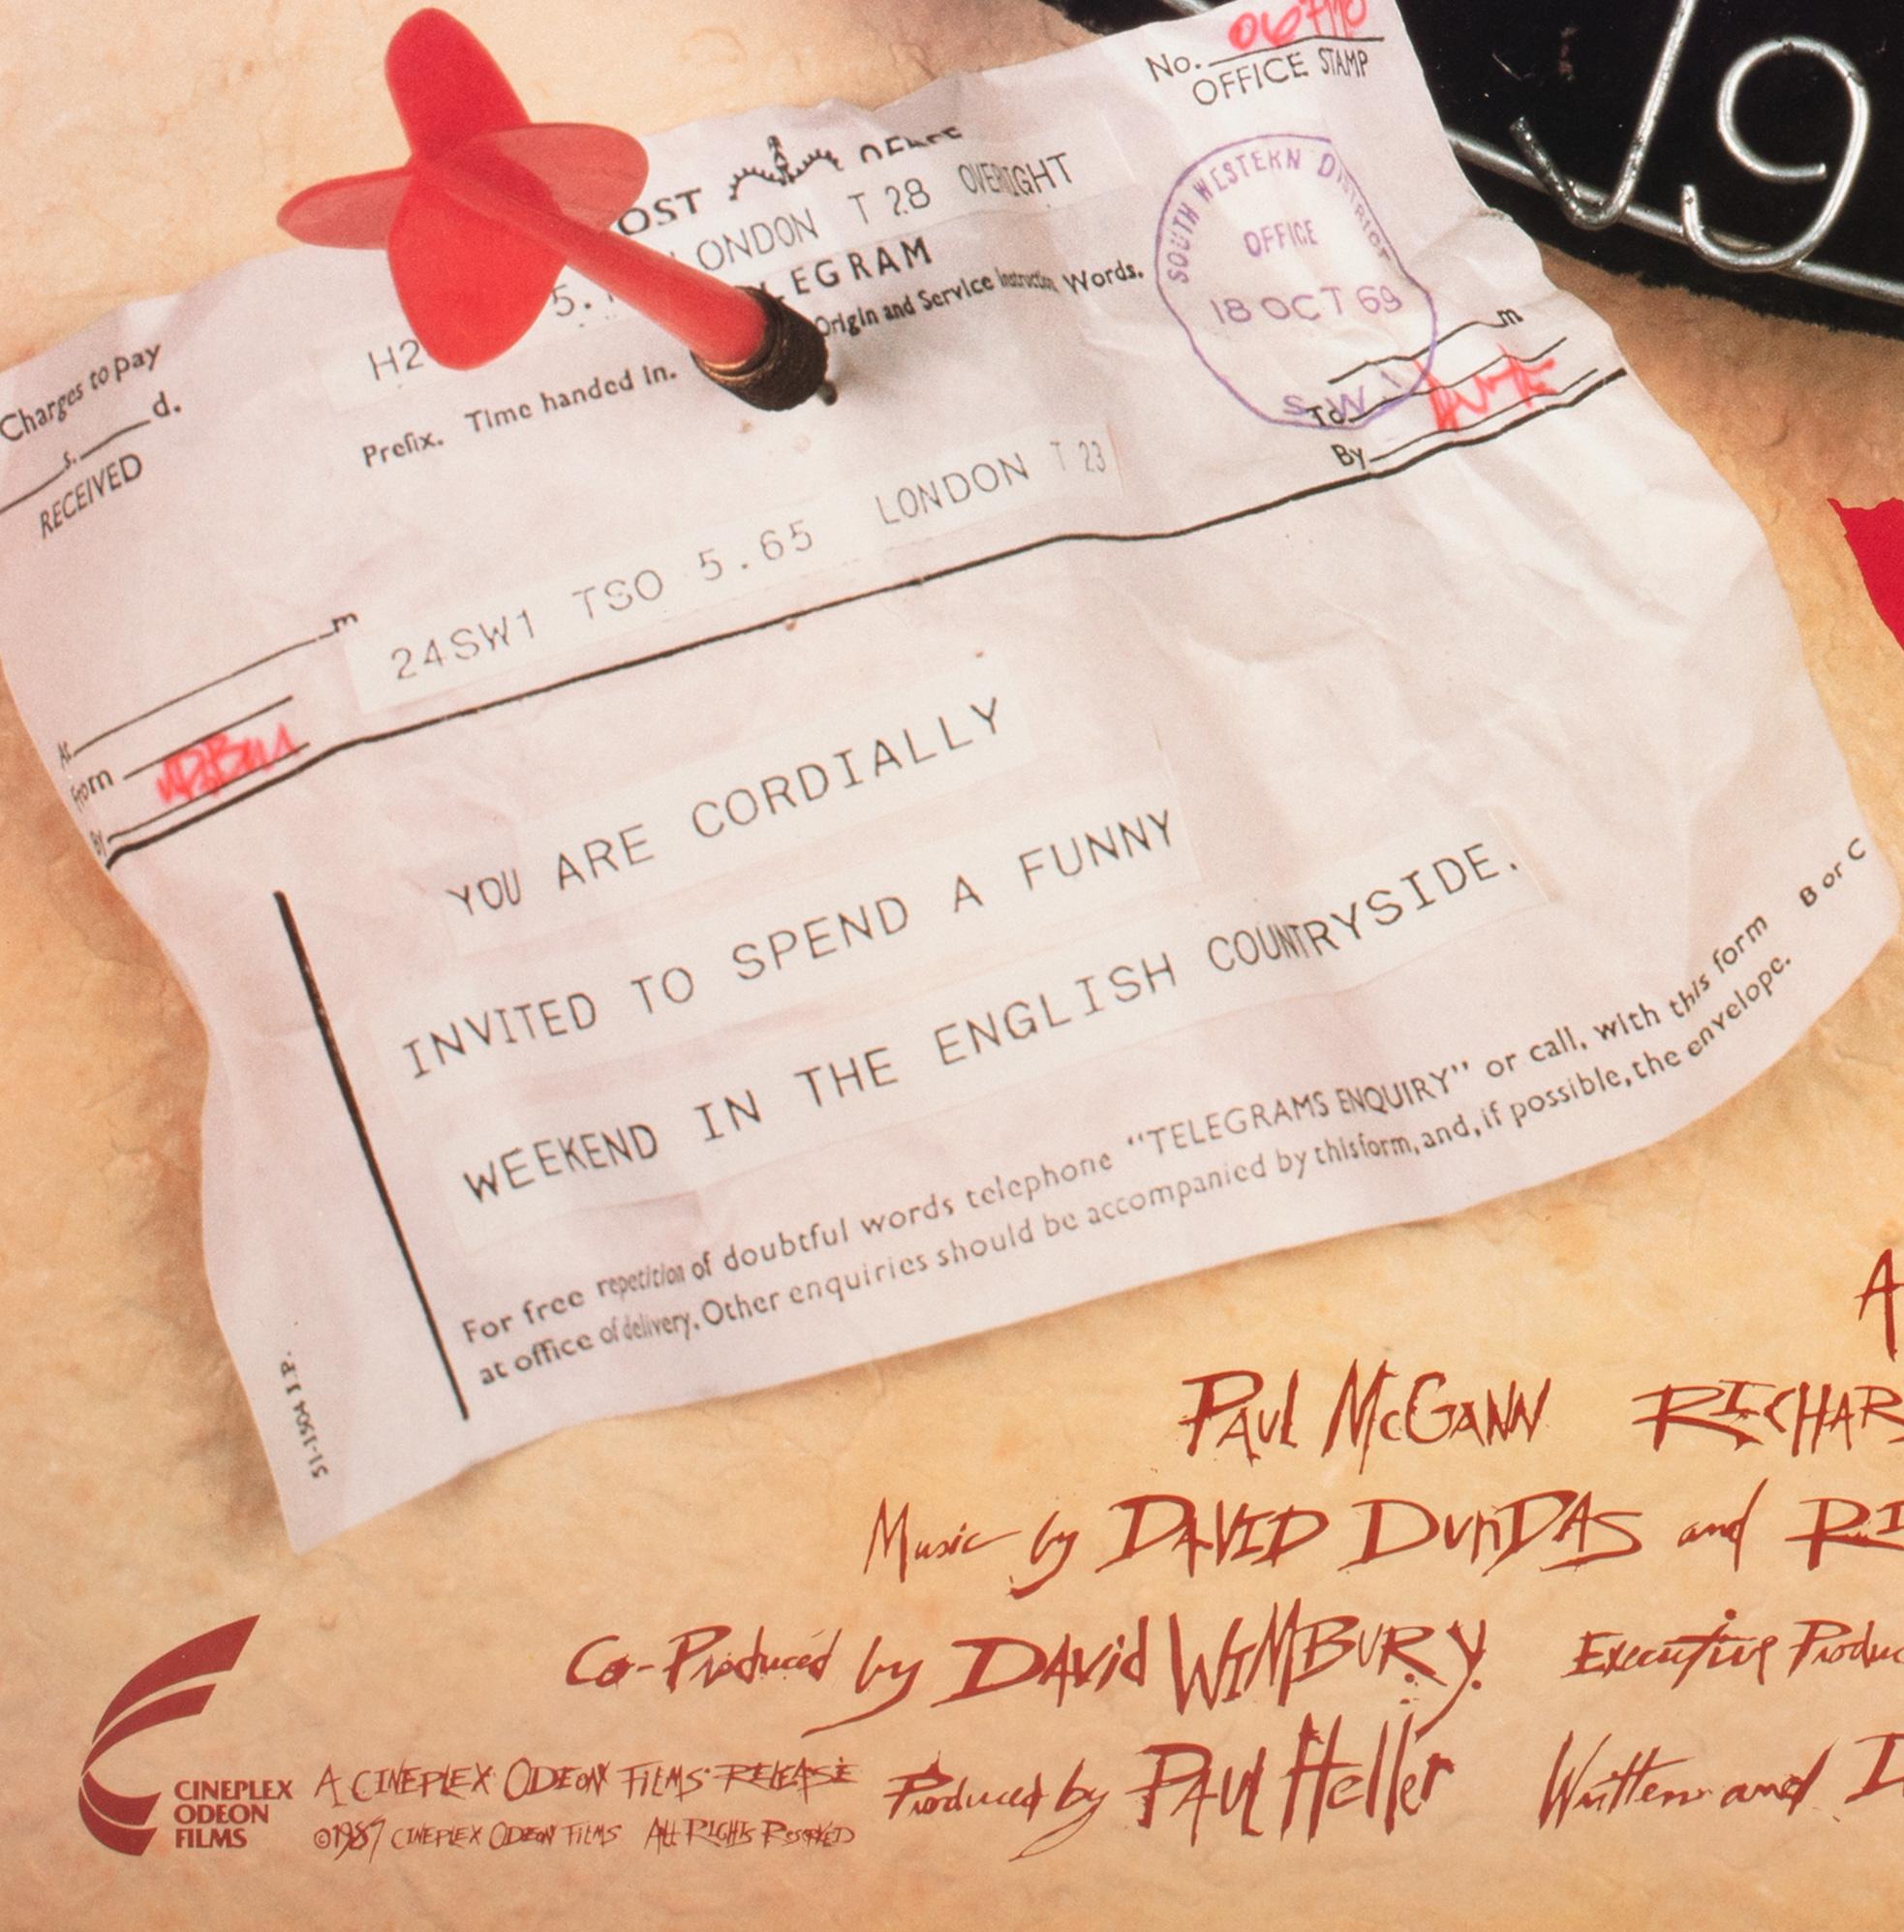 No.
OFFICE STAMP
OST OFFICE
LONDON T 28 OVERIGHT
5.
LEGRAM
H2
Prefix. Time handed in. Origin and Service Instruction Words.
SOUTH WESTERN DISTRICT
OFFICE
18 OCT 69
S.W.1
Charges to pay
s. d.
RECEIVED
m
To
By
24SW1 TSO 5.65 LONDON T 23
m
At
From
By
YOU ARE CORDIALLY
INVITED TO SPEND A FUNNY
WEEKEND IN THE ENGLISH COUNTRYSIDE.
For free repetition of doubtful words telephone “TELEGRAMS ENQUIRY” or call, with this form
at office of delivery. Other enquiries should be accompanied by this form, and, if possible, the envelope.
B or C
51-1904 I.P.
19
A
PAUL McGANN RICHAR
Music by DAVID DUNDAS and RI
Co-Produced by DAVID WIMBURY. Executive Produc
Produced by PAUL Heller Written and D
CINEPLEX
ODEON
FILMS
A CINEPLEX ODEON FILMS RELEASE
©1987 CINEPLEX ODEON FILMS ALL RIGHTS RESERVED